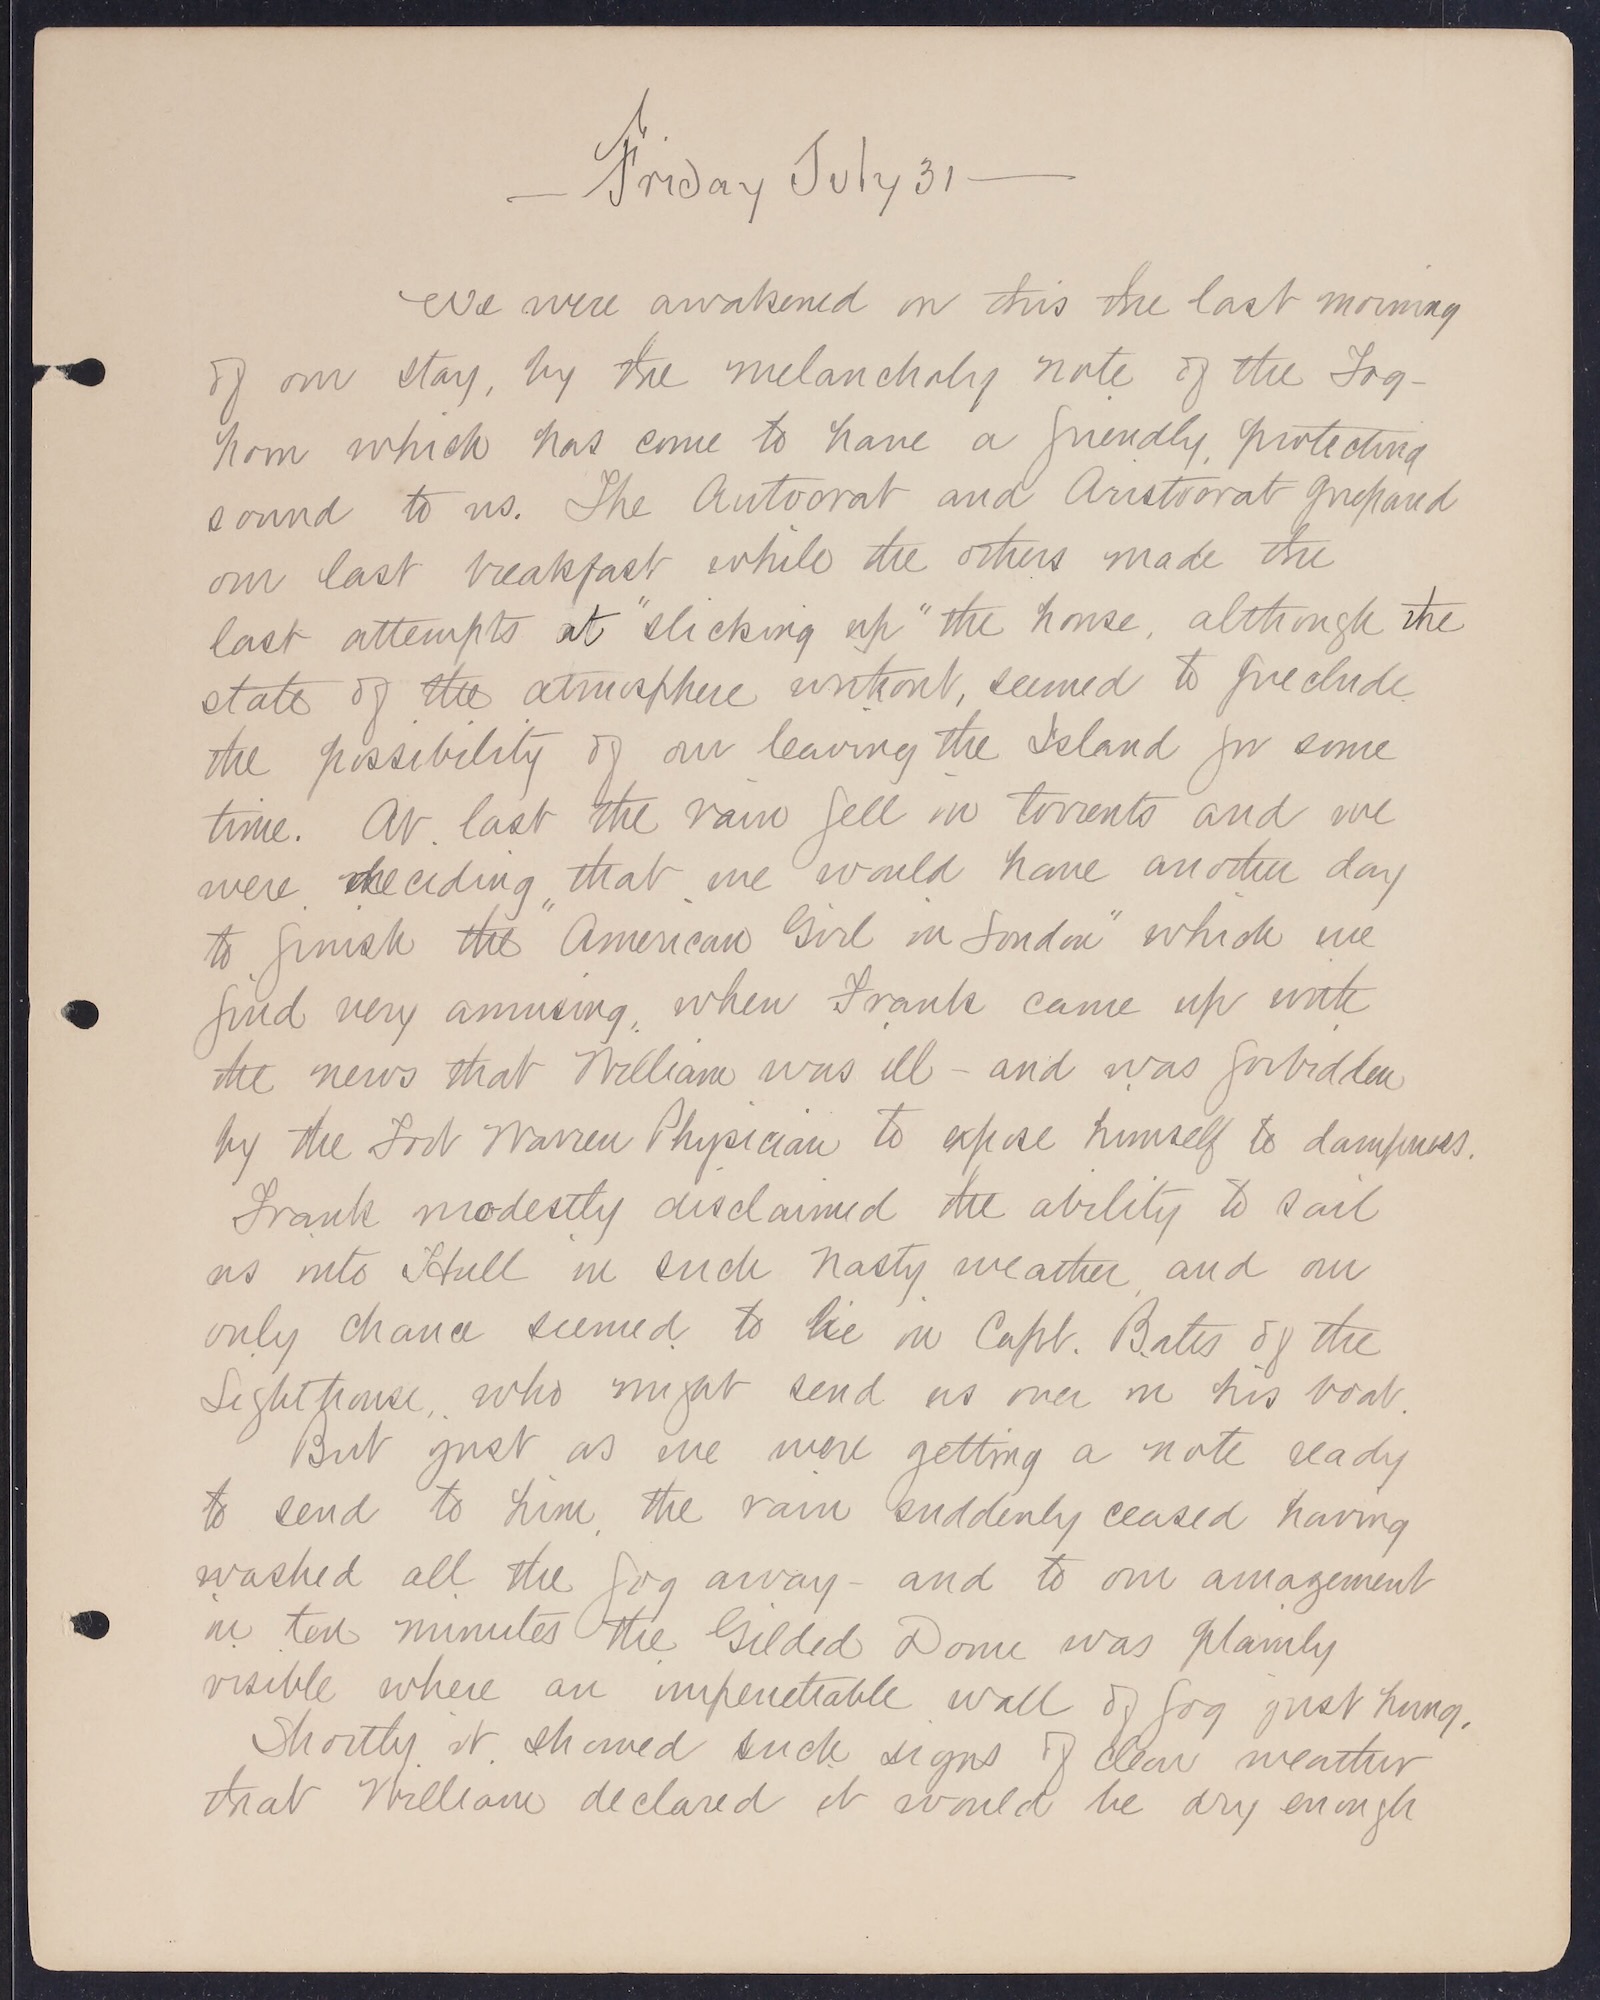 — Friday July 31 —
We were awakened on this the last morning
of our stay, by the melancholy note of the Fog-
horn which has come to have a friendly, protecting
sound to us. The Autocrat and Aristocrat prepared
our last breakfast while the others made the
last attempts at "slicking up" the house, although the
state of the atmosphere without, seemed to preclude
the possibility of our leaving the Island for some
time. At last the rain fell in torrents and we
were deciding that we would have another day
to finish the "American Girl in London" which we
find very amusing, when Frank came up with
the news that William was ill - and was forbidden
by the Fort Warren Physician to expose himself to dampness.
Frank modestly disclaimed the ability to sail
us into Hull in such nasty weather, and our
only chance seemed to lie in Capt. Bates of the
Lighthouse, who might send us over in his boat.
But just as we were getting a note ready
to send to him, the rain suddenly ceased having
washed all the fog away - and to our amazement
in ten minutes the Gilded Dome was plainly
visible where an impenetrable wall of fog just hung.
Shortly it showed such signs of clear weather
that William declared it would be dry enough